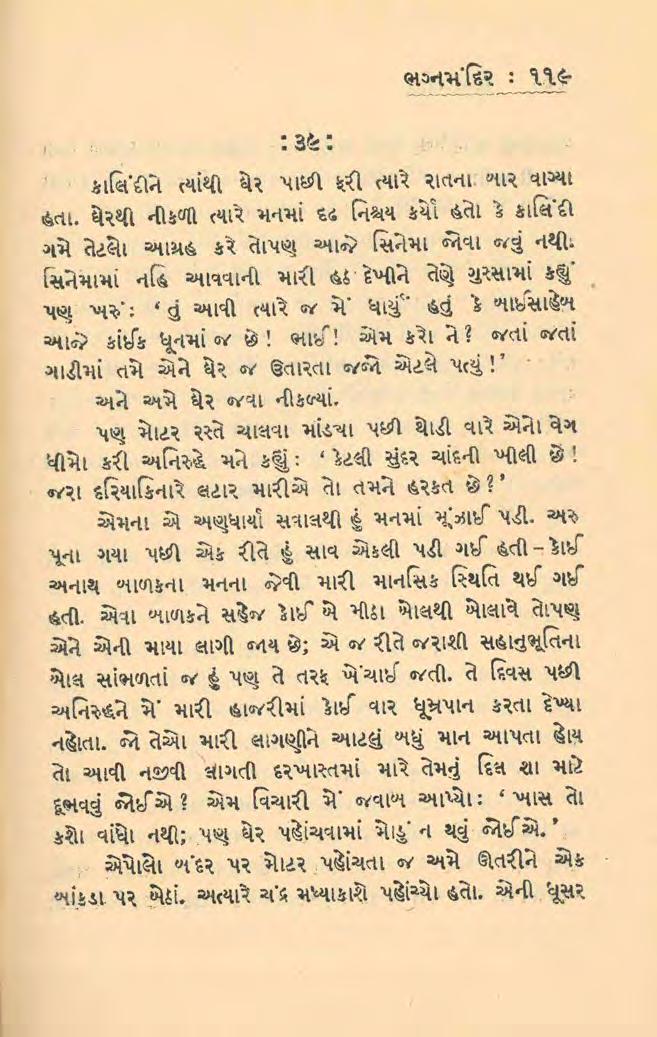 ભગ્નમંદિર : ૧૧૯
: ૩૯ :
કાલિંદીને ત્યાંથી ઘેર પાછી ફરી ત્યારે રાતના બાર વાગ્યા
હતા. ઘેરથી નીકળી ત્યારે મનમાં દૃઢ નિશ્ચય કર્યો હતો કે કાલિંદી
ગમે તેટલો આગ્રહ કરે તોપણ આજે સિનેમા જોવા જવું નથી.
સિનેમામાં નહિ આવવાની મારી હઠ દેખીને તેણે ગુસ્સામાં કહ્યું
પણ ખરું : ‘ તું આવી ત્યારે જ મેં ધાર્યું હતું કે બાઈસાહેબ
આજે કાંઈક ધૂનમાં જ છે ! ભાઈ ! એમ કરો ને ? જતાં જતાં
ગાડીમાં તમે એને ઘેર જ ઉતારતા જજો એટલે પત્યું ! ’
અને અમે ઘેર જવા નીકળ્યાં.
પણ મોટર રસ્તે ચાલવા માંડ્યા પછી થોડી વારે એનો વેગ
ધીમો કરી અનિરુદ્ધે મને કહ્યું : ‘ કેટલી સુંદર ચાંદની ખીલી છે !
જરા દરિયાકિનારે લટાર મારીએ તો તમને હરકત છે ? ’
એમના એ અણધાર્યા સવાલથી હું મનમાં મૂંઝાઈ પડી. અરુ
પૂના ગયા પછી એક રીતે હું સાવ એકલી પડી ગઈ હતી – કોઈ
અનાથ બાળકના મનના જેવી મારી માનસિક સ્થિતિ થઈ ગઈ
હતી. એવા બાળકને સહેજ કોઈ બે મીઠા બોલથી બોલાવે તોપણ
એને એની માયા લાગી જાય છે; એ જ રીતે જરાશી સહાનુભૂતિના
બોલ સાંભળતાં જ હું પણ તે તરફ ખેંચાઈ જતી. તે દિવસ પછી
અનિરુદ્ધને મેં મારી હાજરીમાં કોઈ વાર ધૂમ્રપાન કરતા દેખ્યા
નહોતા. જો તેઓ મારી લાગણીને આટલું બધું માન આપતા હોય
તો આવી નજીવી લાગતી દરખાસ્તમાં મારે તેમનું દિલ શા માટે
દૂભવવું જોઈએ ? એમ વિચારી મેં જવાબ આપ્યો : ‘ ખાસ તો
કશો વાંધો નથી; પણ ઘેર પહોંચવામાં મોડું ન થવું જોઈએ. ’
એપોલો બંદર પર મોટર પહોંચતા જ અમે ઊતરીને એક
બાંકડા પર બેઠાં. અત્યારે ચંદ્ર મધ્યાકાશે પહોંચ્યો હતો. એની ધૂસર